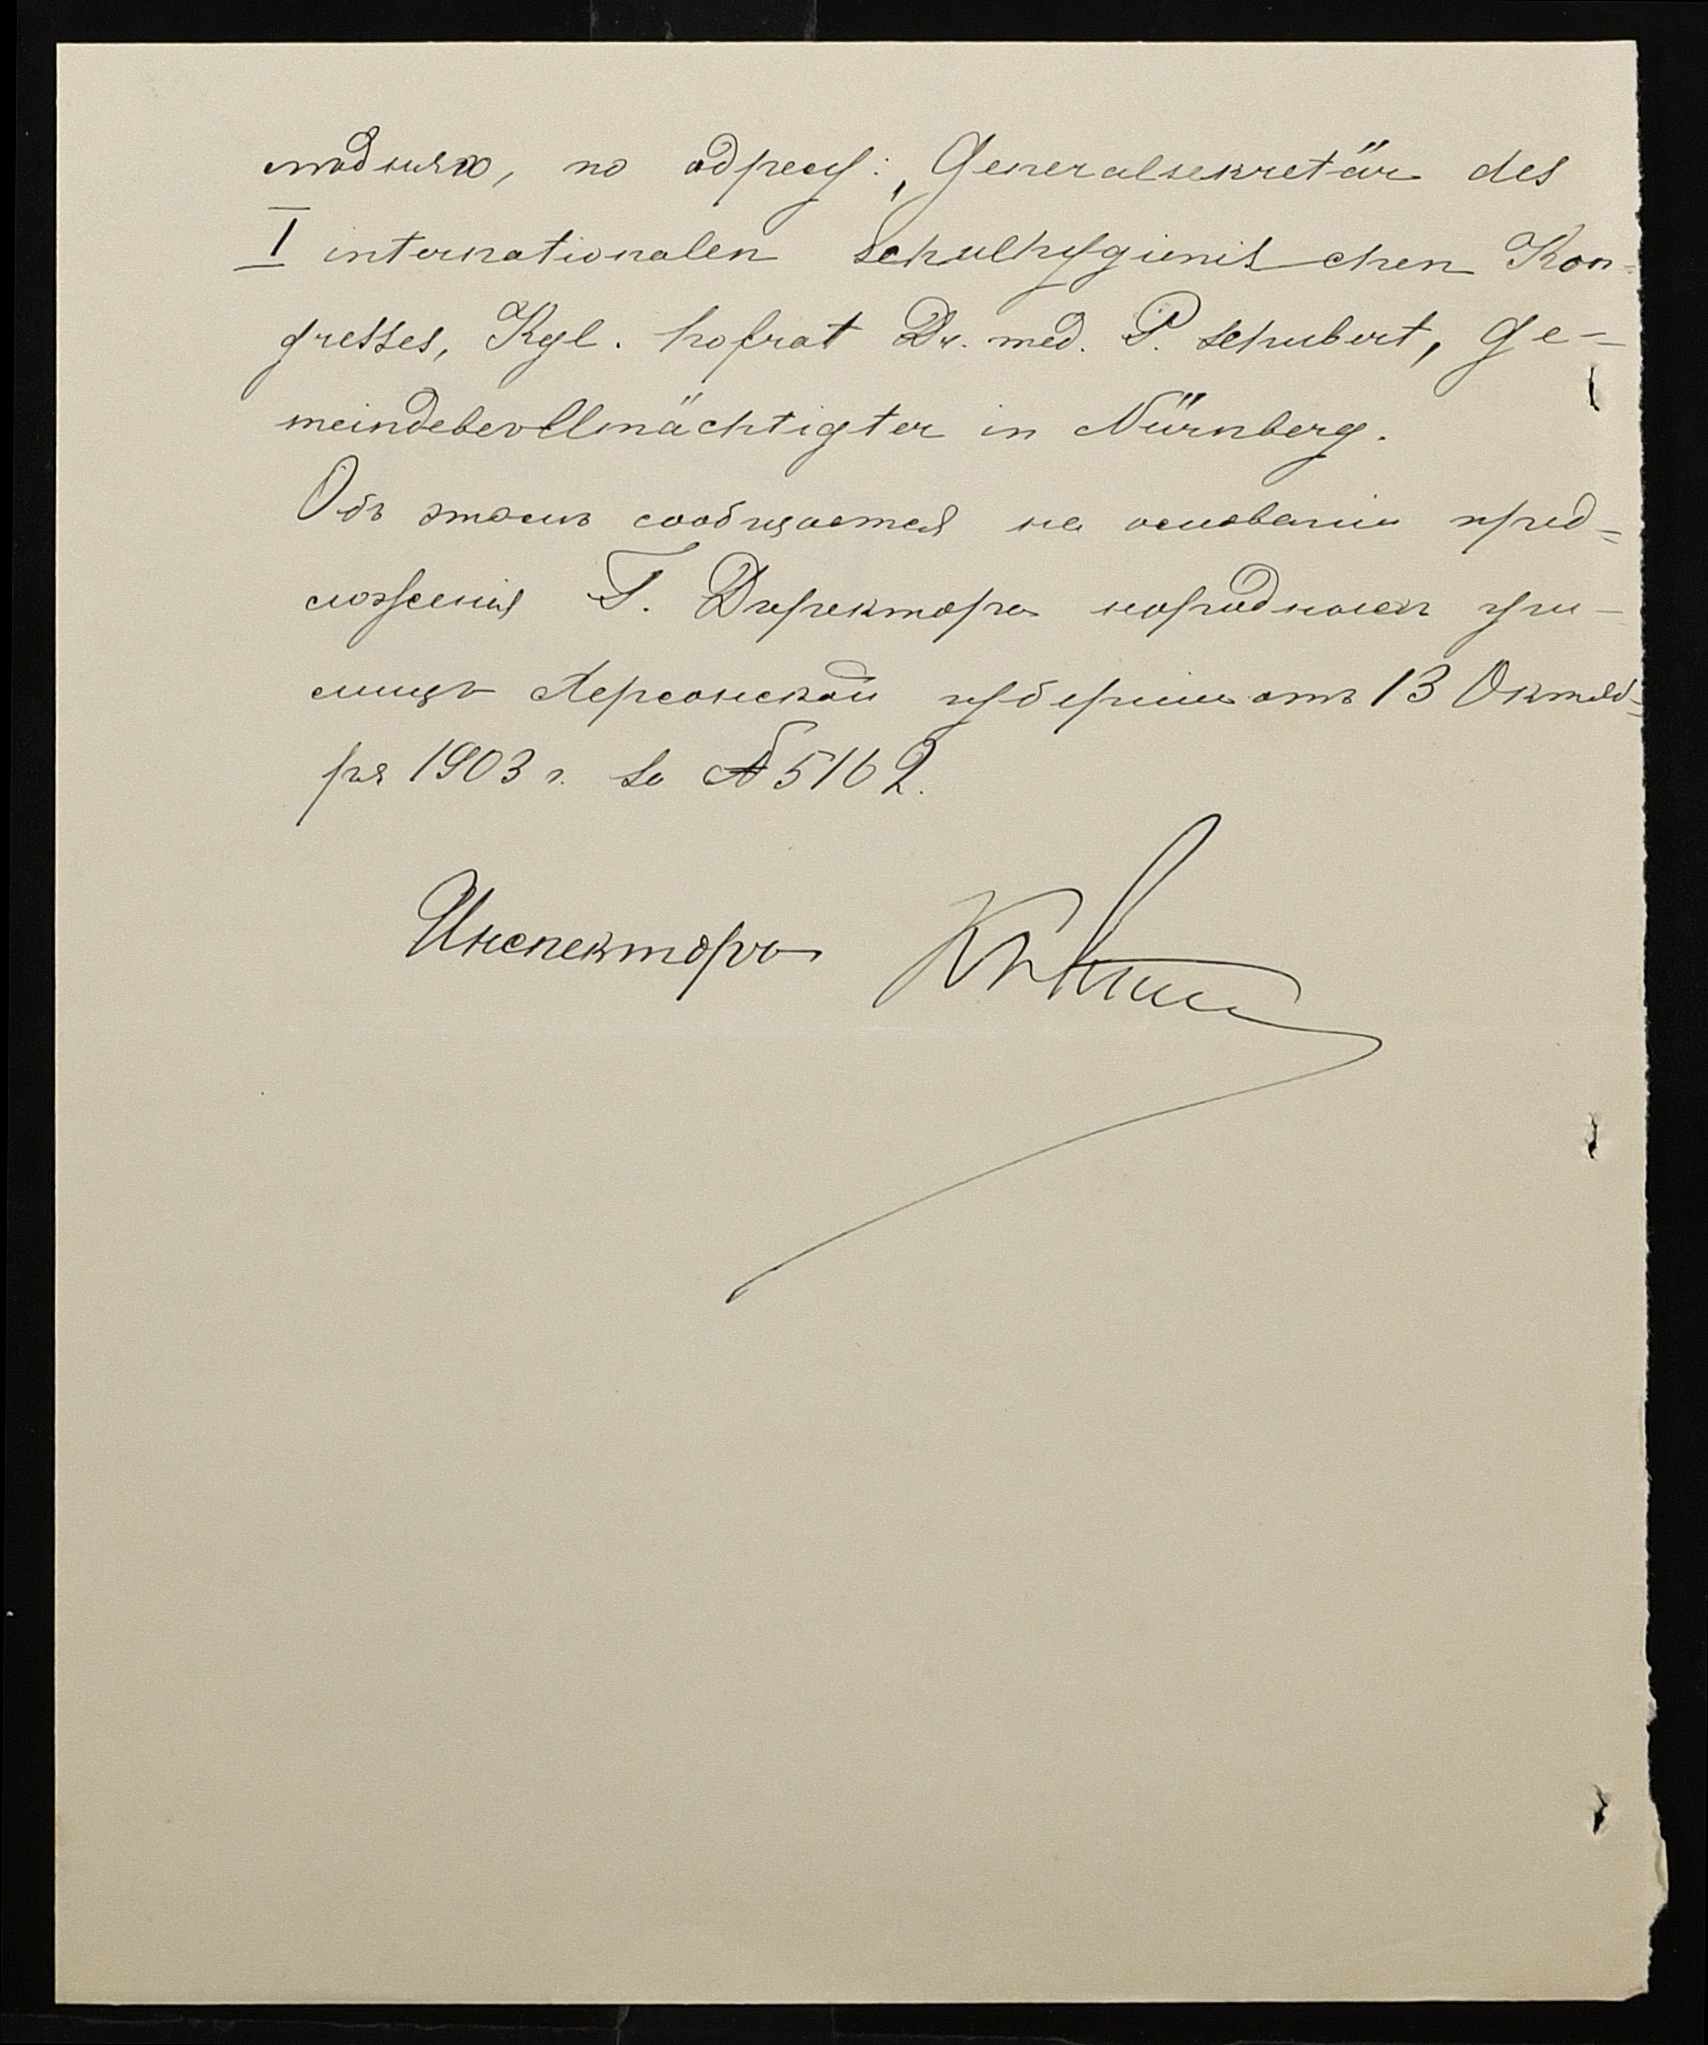 по адресу: „Generalsekretär des
I internationalen schulhygienischen Kon-
gresses, Kgl. hofrat Dr. med. P. Schubert, Ge-
meindebevollmächtigter in Nürnberg.
Объ этомъ сообщается на основанiи пред-
ложенiя Г. Директора народныхъ учи-
лищъ Херсонской губернiи отъ 13 Октяб-
ря 1903 г. за № 5162.
Инспекторъ